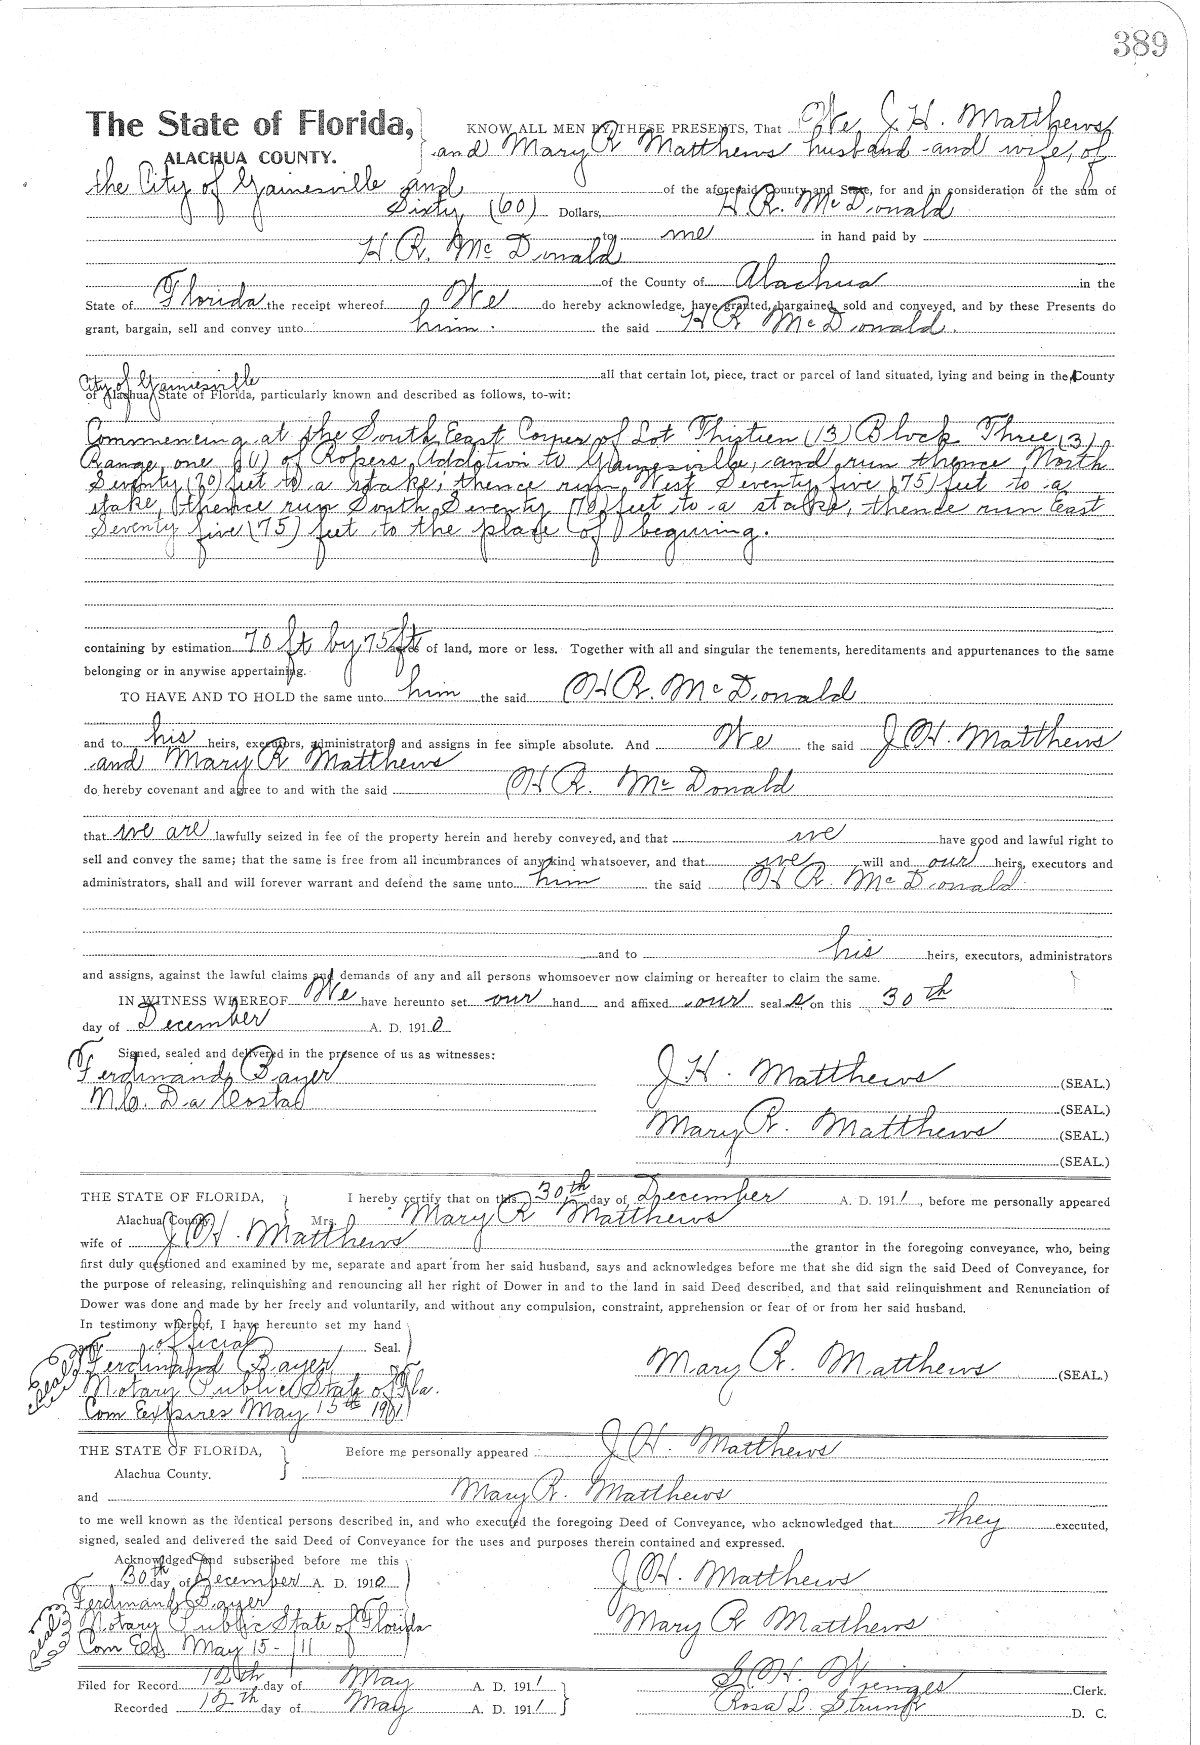 389
The State of Florida, KNOW ALL MEN BY THESE PRESENTS, That We J. H. Matthews
ALACHUA COUNTY. and Mary R Matthews husband and wife, of
the City of Gainesville and of the aforesaid County and State, for and in consideration of the sum of
Sixty (60) Dollars, H. R. McDonald
to me in hand paid by
H. R. McDonald
of the County of Alachua in the
State of Florida the receipt whereof We do hereby acknowledge, have granted, bargained, sold and conveyed, and by these Presents do
grant, bargain, sell and convey unto him. the said H R McDonald.
City of Gainesville all that certain lot, piece, tract or parcel of land situated, lying and being in the County
of Alachua, State of Florida, particularly known and described as follows, to-wit:
Commencing at the South East Corner of Lot Thirteen (13) Block Three (3)
Range one (1) of Ropers Addition to Gainesville, and run thence North
Seventy (70) feet to a stake; thence run West Seventy five (75) feet to a
stake, thence run South Seventy (70) feet to a stake, thence run East
Seventy five (75) feet to the place of beginning.
containing by estimation 70 ft by 75 ft of land, more or less. Together with all and singular the tenements, hereditaments and appurtenances to the same
belonging or in anywise appertaining.
TO HAVE AND TO HOLD the same unto him the said H R. McDonald
and to his heirs, executors, administrators and assigns in fee simple absolute. And We the said J. H. Matthews
and Mary R Matthews
do hereby covenant and agree to and with the said H R. McDonald
that we are lawfully seized in fee of the property herein and hereby conveyed, and that we have good and lawful right to
sell and convey the same; that the same is free from all incumbrances of any kind whatsoever, and that we will and our heirs, executors and
administrators, shall and will forever warrant and defend the same unto him the said H R. McDonald
and to his heirs, executors, administrators
and assigns, against the lawful claims and demands of any and all persons whomsoever now claiming or hereafter to claim the same.
IN WITNESS WHEREOF We have hereunto set our hand and affixed our seal s on this 30th
day of December A. D. 1910
Signed, sealed and delivered in the presence of us as witnesses:
Ferdinand Bayer J H. Matthews (SEAL.)
M. C. Da Costa (SEAL.)
Mary R. Matthews (SEAL.)
(SEAL.)
THE STATE OF FLORIDA, I hereby certify that on this 30th day of December A. D. 1911, before me personally appeared
Alachua County. Mrs. Mary R Matthews
wife of J H. Matthews the grantor in the foregoing conveyance, who, being
first duly questioned and examined by me, separate and apart from her said husband, says and acknowledges before me that she did sign the said Deed of Conveyance, for
the purpose of releasing, relinquishing and renouncing all her right of Dower in and to the land in said Deed described, and that said relinquishment and Renunciation of
Dower was done and made by her freely and voluntarily, and without any compulsion, constraint, apprehension or fear of or from her said husband.
In testimony whereof, I have hereunto set my hand
official Seal.
Seal Ferdinand Bayer Mary R. Matthews (SEAL.)
Notary Public State of Fla.
Com Expires May 15th 1911
THE STATE OF FLORIDA, Before me personally appeared J H. Matthews
Alachua County.
and Mary R. Matthews
to me well known as the identical persons described in, and who executed the foregoing Deed of Conveyance, who acknowledged that they executed,
signed, sealed and delivered the said Deed of Conveyance for the uses and purposes therein contained and expressed.
Acknowledged and subscribed before me this
30th day of December A. D. 1910 J H. Matthews
Ferdinand Bayer
Seal Notary Public State of Florida Mary R Matthews
Com Ex. May 15-/11
Filed for Record 12th day of May A. D. 1911 S. H. Wienges Clerk.
Recorded 12th day of May A. D. 1911 Rosa L. Strunk D. C.